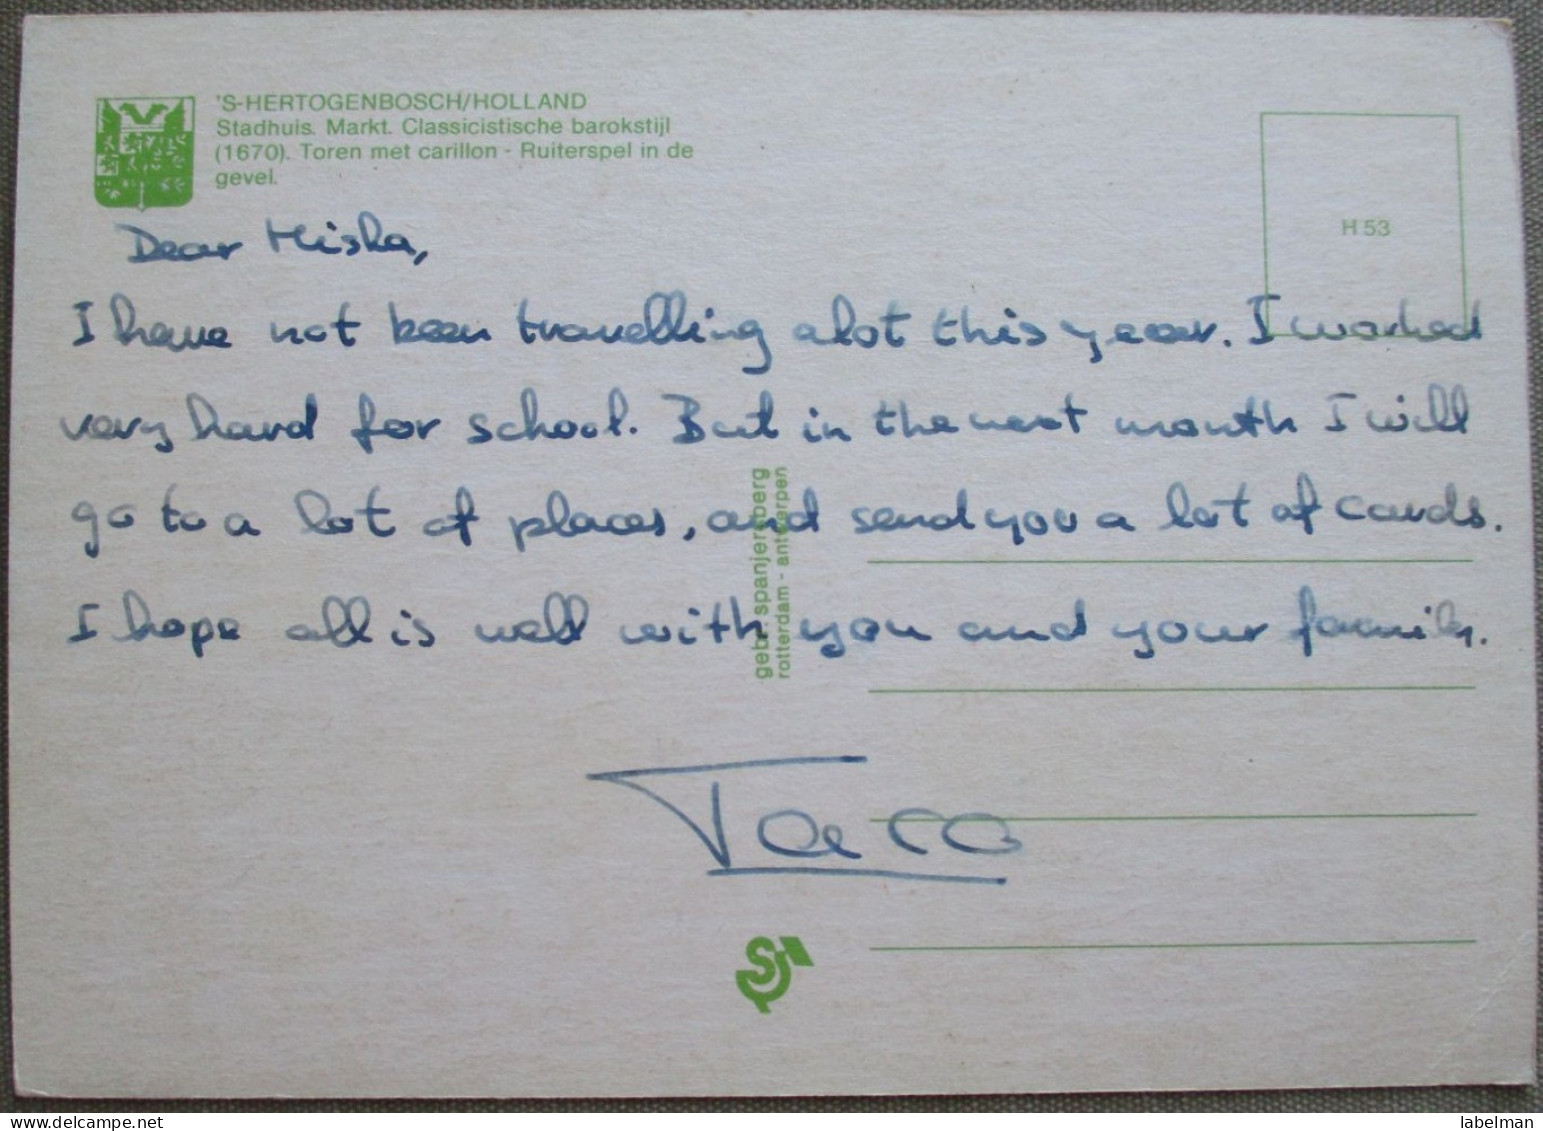 'S-HERTOGENBOSCH/HOLLAND
Stadhuis. Markt. Classicistische barokstijl
(1670). Toren met carillon - Ruiterspel in de
gevel.
H 53
Dear Misha,
I have not been travelling alot this year. I worked
very hard for school. But in the next month I will
go to a lot of places, and send you a lot of cards.
I hope all is well with you and your family.
gebr. spanjersberg
rotterdam - antwerpen
Taco
S
delcampe.net
labelman